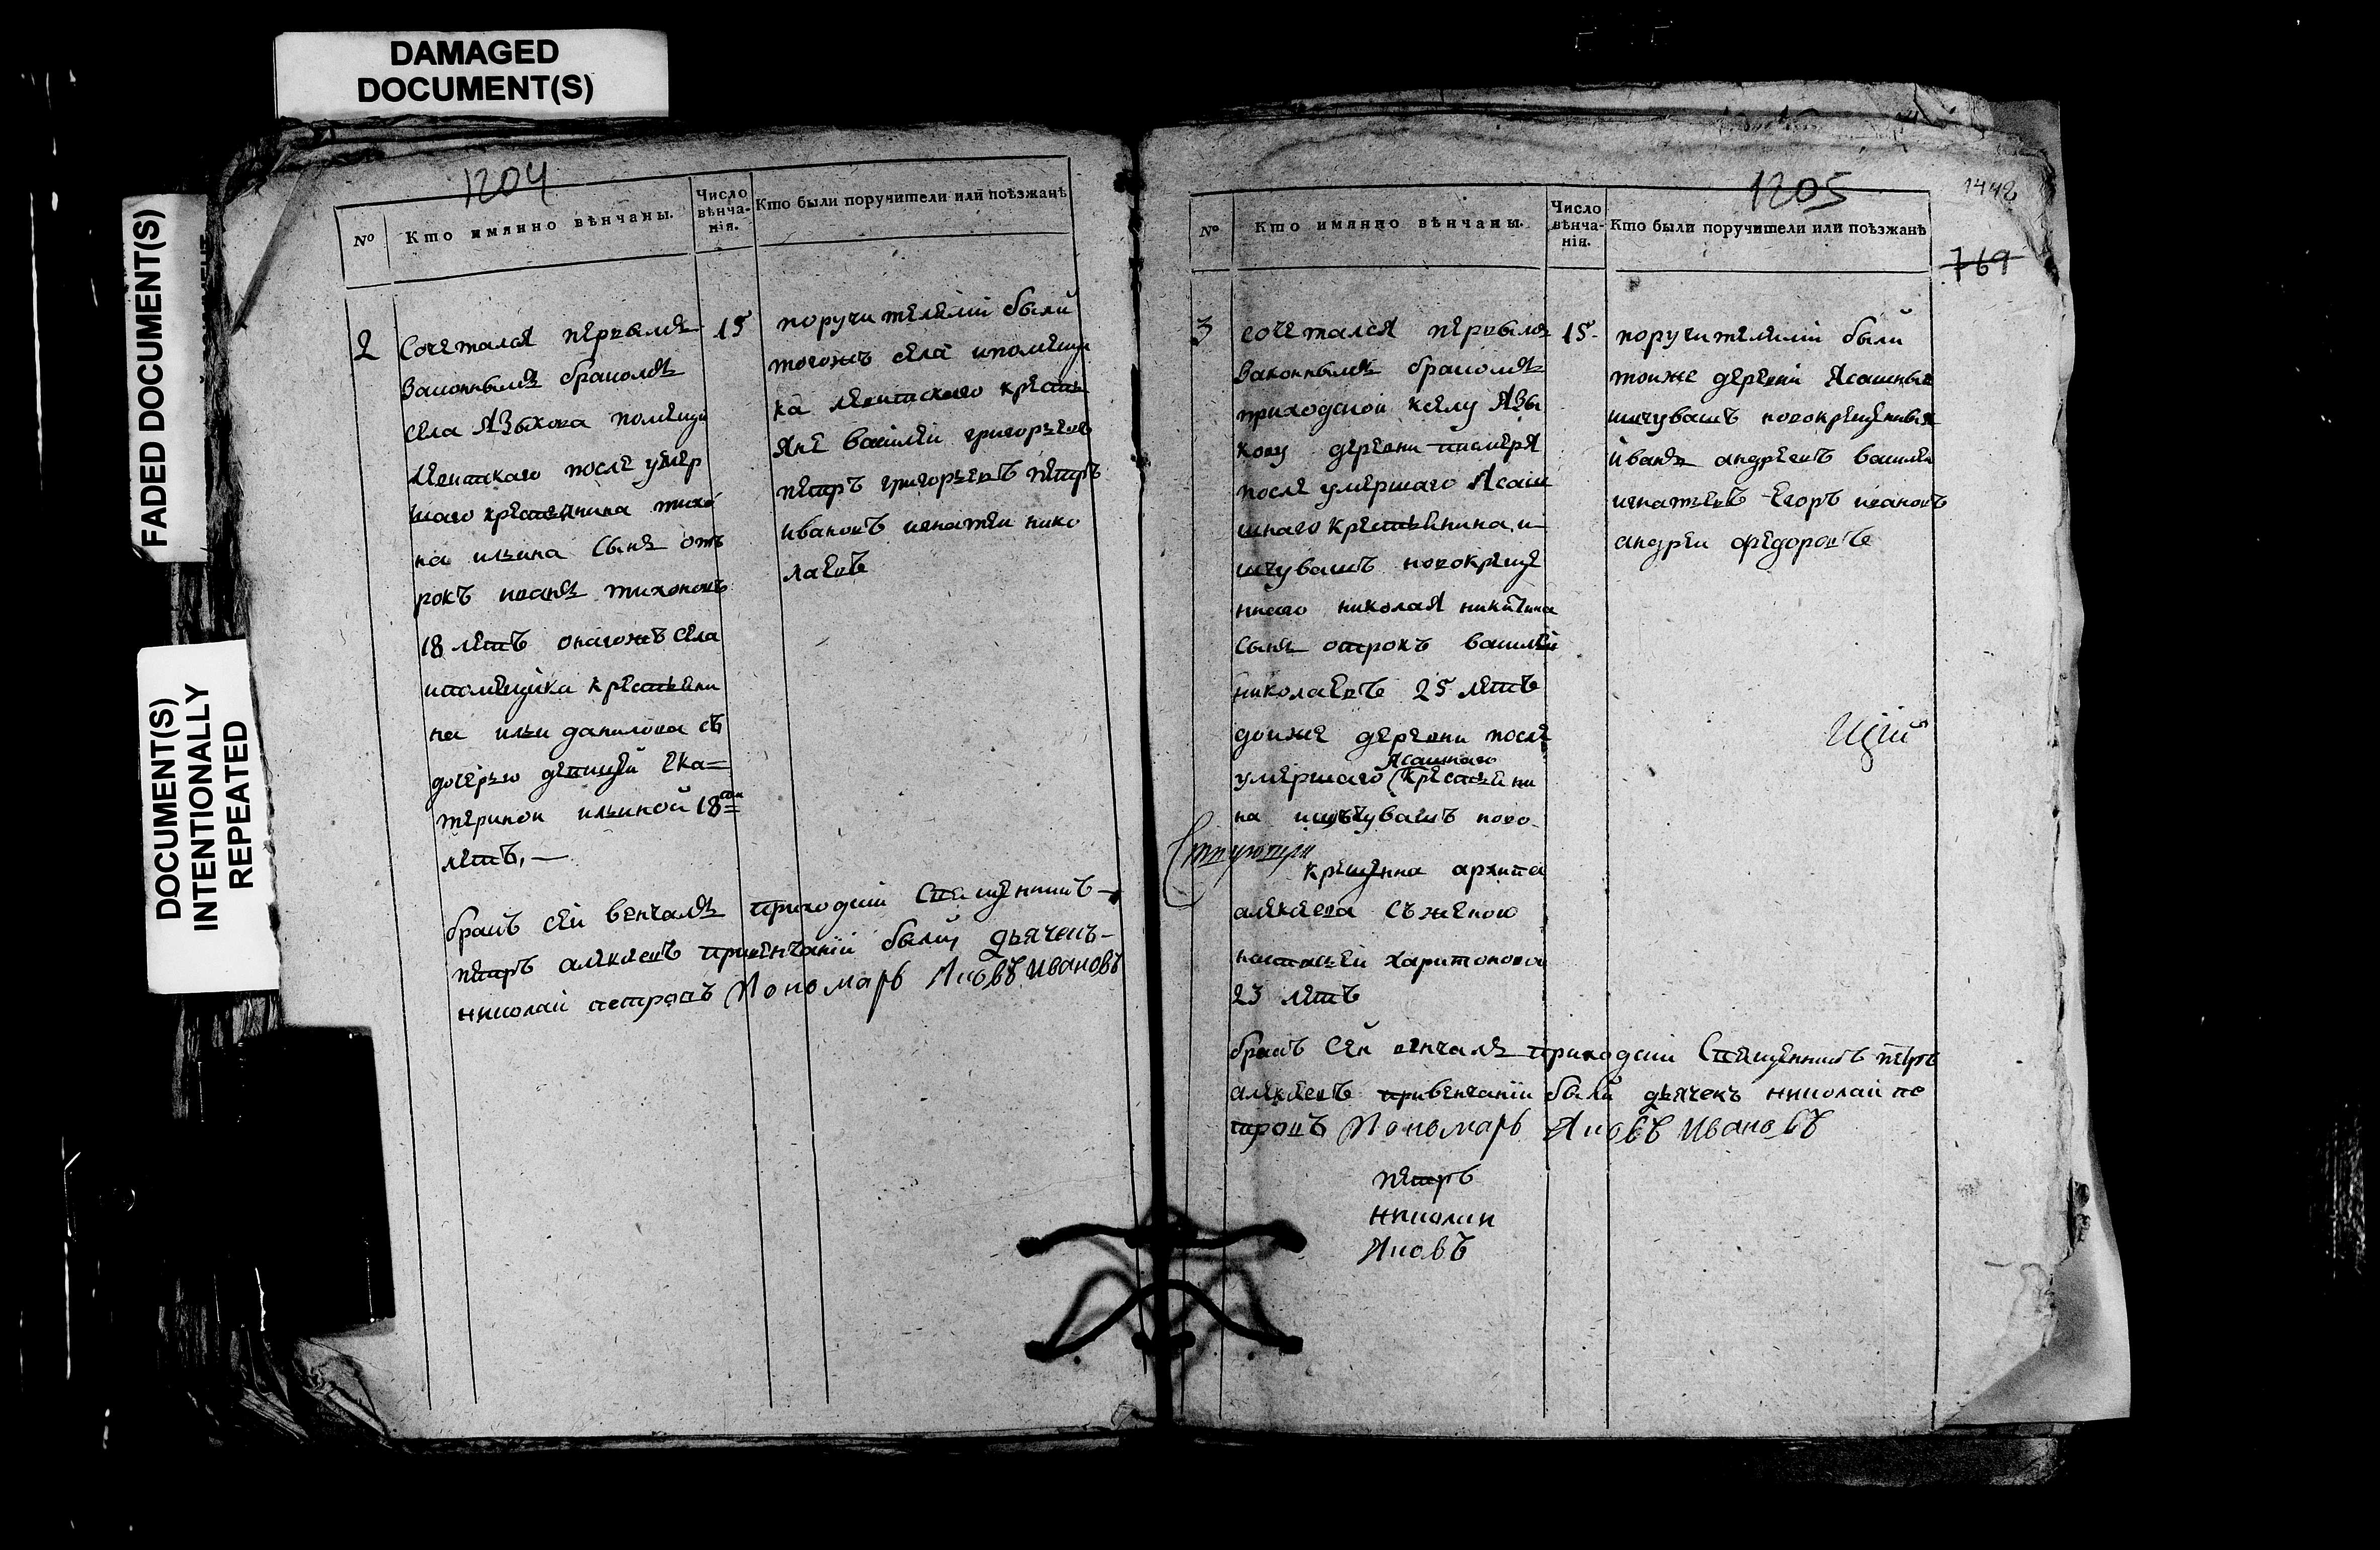 DAMAGED
DOCUMENT(S)
FADED DOCUMENT(S)
DOCUMENT(S)
INTENTIONALLY
REPEATED
1204
№
Кто имянно вѣнчаны.
Число
вѣнча-
нія.
Кто были поручители или поѣзжанѣ
2
Сочетался первымъ
Законнымъ бракомъ
села Языкова помещи
после умер
шаго крестянина тихо
на ильина Сынъ от
рокъ иванъ тихоновъ
18 летъ онагожъ села
ипомещика крестьяни
на ильи данилова съ
дочерью девицей Ека=
териной ильиной 18ти
летъ,—
15
поручителями были
тогожъ села ипомещи
ка крестья
яне василей григорьевъ
петръ григорьевъ петръ
ивановъ игнатеи нико
лаевъ
бракъ сеи венчалъ приходскии Священникъ
петръ алексеевъ привенчании были дьячекъ-
николаи петровъ Пономарь Яковъ Ивановъ
1205
1448
769
№
Кто имянно вѣнчаны.
Число
вѣнча-
нія.
Кто были поручители или поѣзжанѣ
3
сочетался первымъ
Законнымъ бракомъ
приходской кселу Язы
кову деревни писмеря
после умершаго Ясаш
шнаго крестьянина и-
щчувашъ новокреще
ннаго николая никитина
сынъ отрокъ василеи
николаевъ 25 летъ
тоиже деревни после
Ясашнаго
умершаго крестьяни
на ищъчувашъ ново-
крещенна архипа
алексеева съ женою
настасьеи харитоновои
23 летъ
15-
поручителями были
тоиже деревни Ясашные
ищчувашъ новокрещенныя
иванъ андреевъ василеи
игнатьевъ Егоръ ивановъ
андреи федоровъ
бракъ Сеи венчалъ приходскии Священникъ петръ
алексеевъ привенчании были дьячекъ николаи пе
тровъ Пономарь Яковъ Ивановъ
петръ
николаи
Яковъ